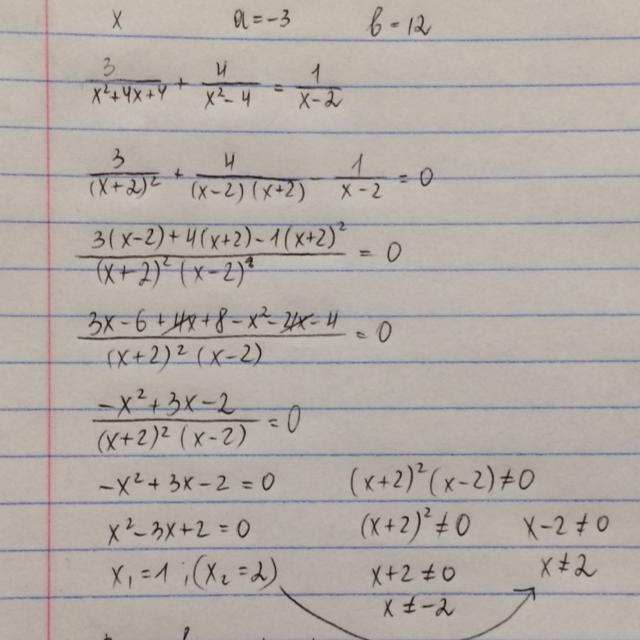 x a=-3 b=12
3/(x²+4x+4) + 4/(x²-4) = 1/(x-2)
3/(x+2)² + 4/((x-2)(x+2)) - 1/(x-2) = 0
(3(x-2)+4(x+2)-1(x+2)²)/((x+2)²(x-2)) = 0
(3x-6+4x+8-x²-4x-4)/((x+2)²(x-2)) = 0
(-x²+3x-2)/((x+2)²(x-2)) = 0
-x²+3x-2=0 (x+2)²(x-2)≠0
x²-3x+2=0 (x+2)²≠0 x-2≠0
x₁=1; (x₂=2) x+2≠0 x≠2
x≠-2